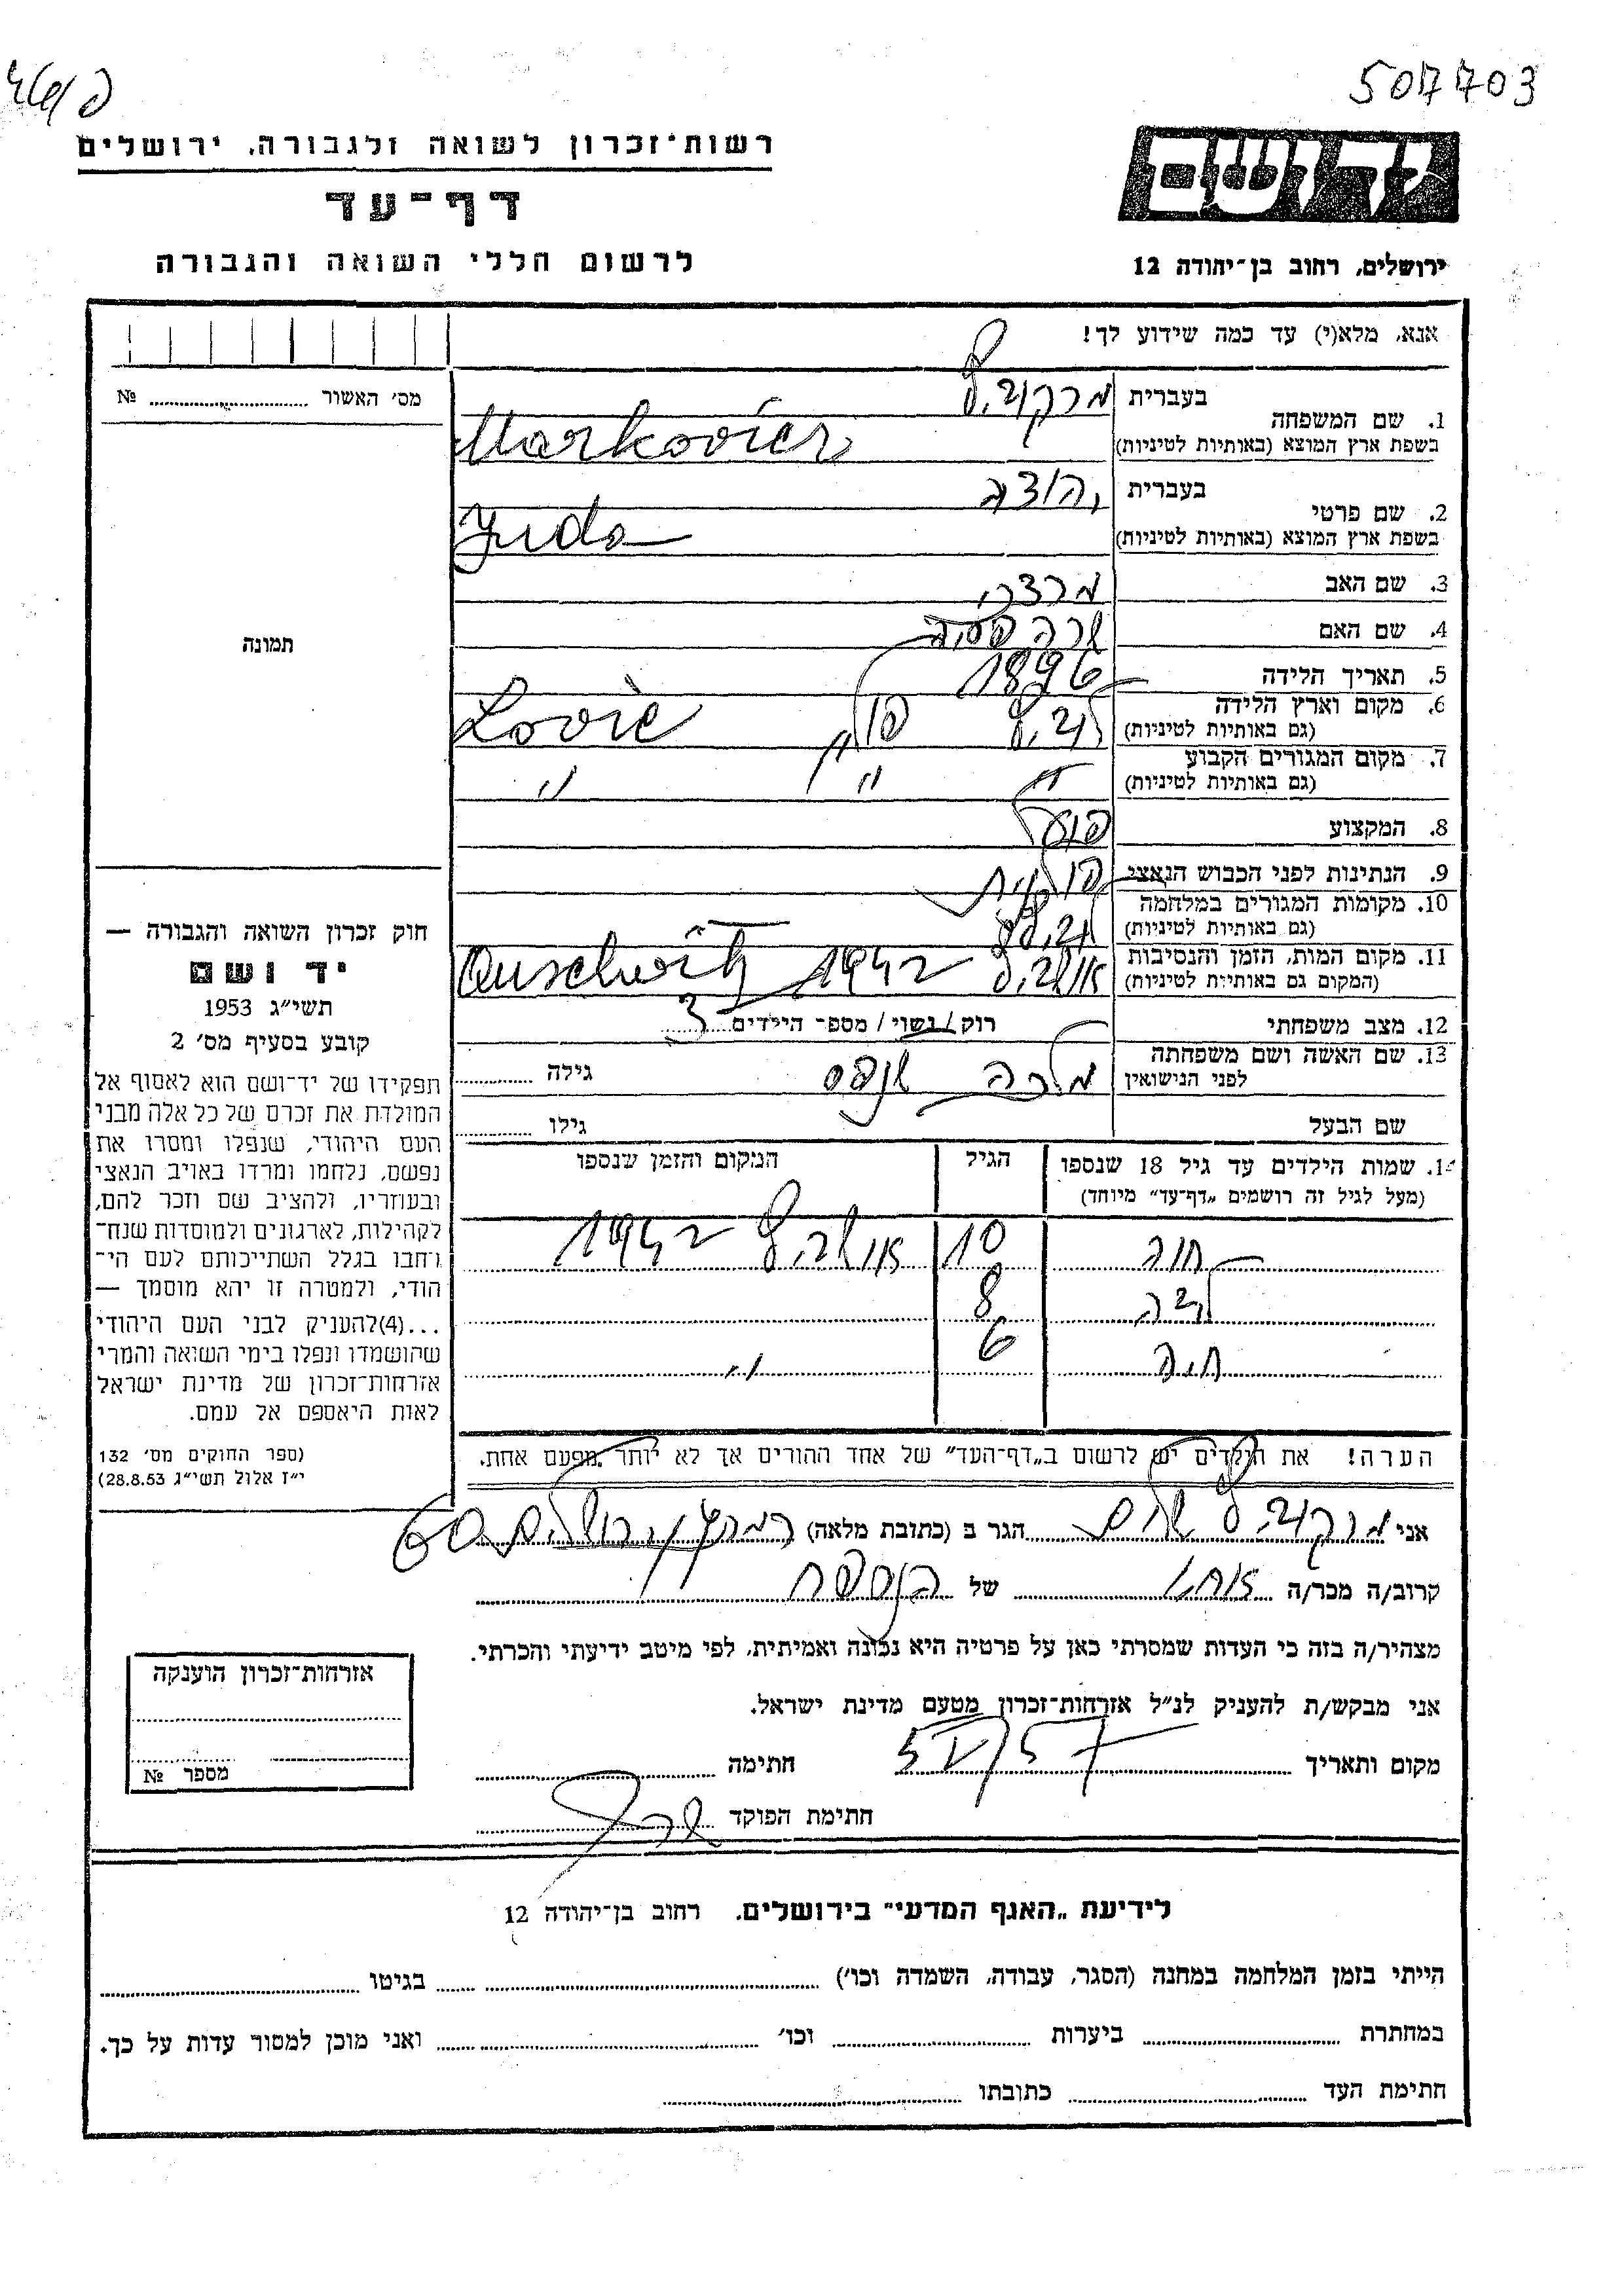 507703
רשות־זכרון לשואה ולגבורה, ירושלים
יד ושם
דף־עד
לרשום חללי השואה והגבורה
ירושלים, רחוב בן־יהודה 12
אנא, מלא(י) עד כמה שידוע לך!
מס׳ האשור № ..........
תמונה
1. שם המשפחה
בעברית מרקוביץ
בשפת ארץ המוצא (באותיות לטיניות) Markovicz
2. שם פרטי
בעברית יהודה
בשפת ארץ המוצא (באותיות לטיניות) Juda
3. שם האב מרדכי
4. שם האם שרה
5. תאריך הלידה 1896
6. מקום וארץ הלידה
(גם באותיות לטיניות) Lovic
7. מקום המגורים הקבוע
(גם באותיות לטיניות) " " "
8. המקצוע פועל
9. הנתינות לפני הכבוש הנאצי
10. מקומות המגורים במלחמה
(גם באותיות לטיניות)
11. מקום המות, הזמן והנסיבות
(המקום גם באותיות לטיניות) אושביץ 1942 Auschwitz
12. מצב משפחתי רוק/נשוי/מספ־ הילדים 3
13. שם האשה ושם משפחתה
לפני הנישואין מלכה גילה ..........
שם הבעל גילו ..........
1. שמות הילדים עד גיל 18 שנספו הגיל המקום והזמן שנספו
(מעל לגיל זה רושמים „דף־עד״ מיוחד)
חוה 10 אושביץ 1942
8
חיה 6 "
הערה! את הילדים יש לרשום ב„דף־העד״ של אחד ההורים אך לא יותר מפעם אחת.
חוק זכרון השואה והגבורה —
יד ושם
תשי״ג 1953
קובע בסעיף מס׳ 2
תפקידו של יד־ושם הוא לאסוף אל
המולדת את זכרם של כל אלה מבני
העם היהודי, שנפלו ומסרו את
נפשם, נלחמו ומרדו באויב הנאצי
ובעוזריו, ולהציב שם וזכר להם,
לקהילות, לארגונים ולמוסדות שנח־
רחבו בגלל השתייכותם לעם הי־
הודי, ולמטרה זו יהא מוסמך —
...(4)להעניק לבני העם היהודי
שהושמדו ונפלו בימי השואה והמרי
אזרחות־זכרון של מדינת ישראל
לאות היאספם אל עמם.
(ספר החוקים מס׳ 132
י״ז אלול תשי״ג 28.8.53)
אני מרקוביץ שלום הגר ב (כתובת מלאה)
קרוב/ה מכר/ה של הנספה
מצהיר/ה בזה כי העדות שמסרתי כאן על פרטיה היא נכונה ואמיתית, לפי מיטב ידיעתי והכרתי.
אני מבקש/ת להעניק לנ״ל אזרחות־זכרון מטעם מדינת ישראל.
מקום ותאריך חתימה ..........
חתימת הפוקד
אזרחות־זכרון הוענקה
מספר №
לידיעת „האגף המדעי״ בירושלים. רחוב בן־יהודה 12
הייתי בזמן המלחמה במחנה (הסגר, עבודה, השמדה וכו׳) .......... בגיטו ..........
במחתרת .......... ביערות .......... וכו׳ .......... ואני מוכן למסור עדות על כך.
חתימת העד .......... כתובתו ..........